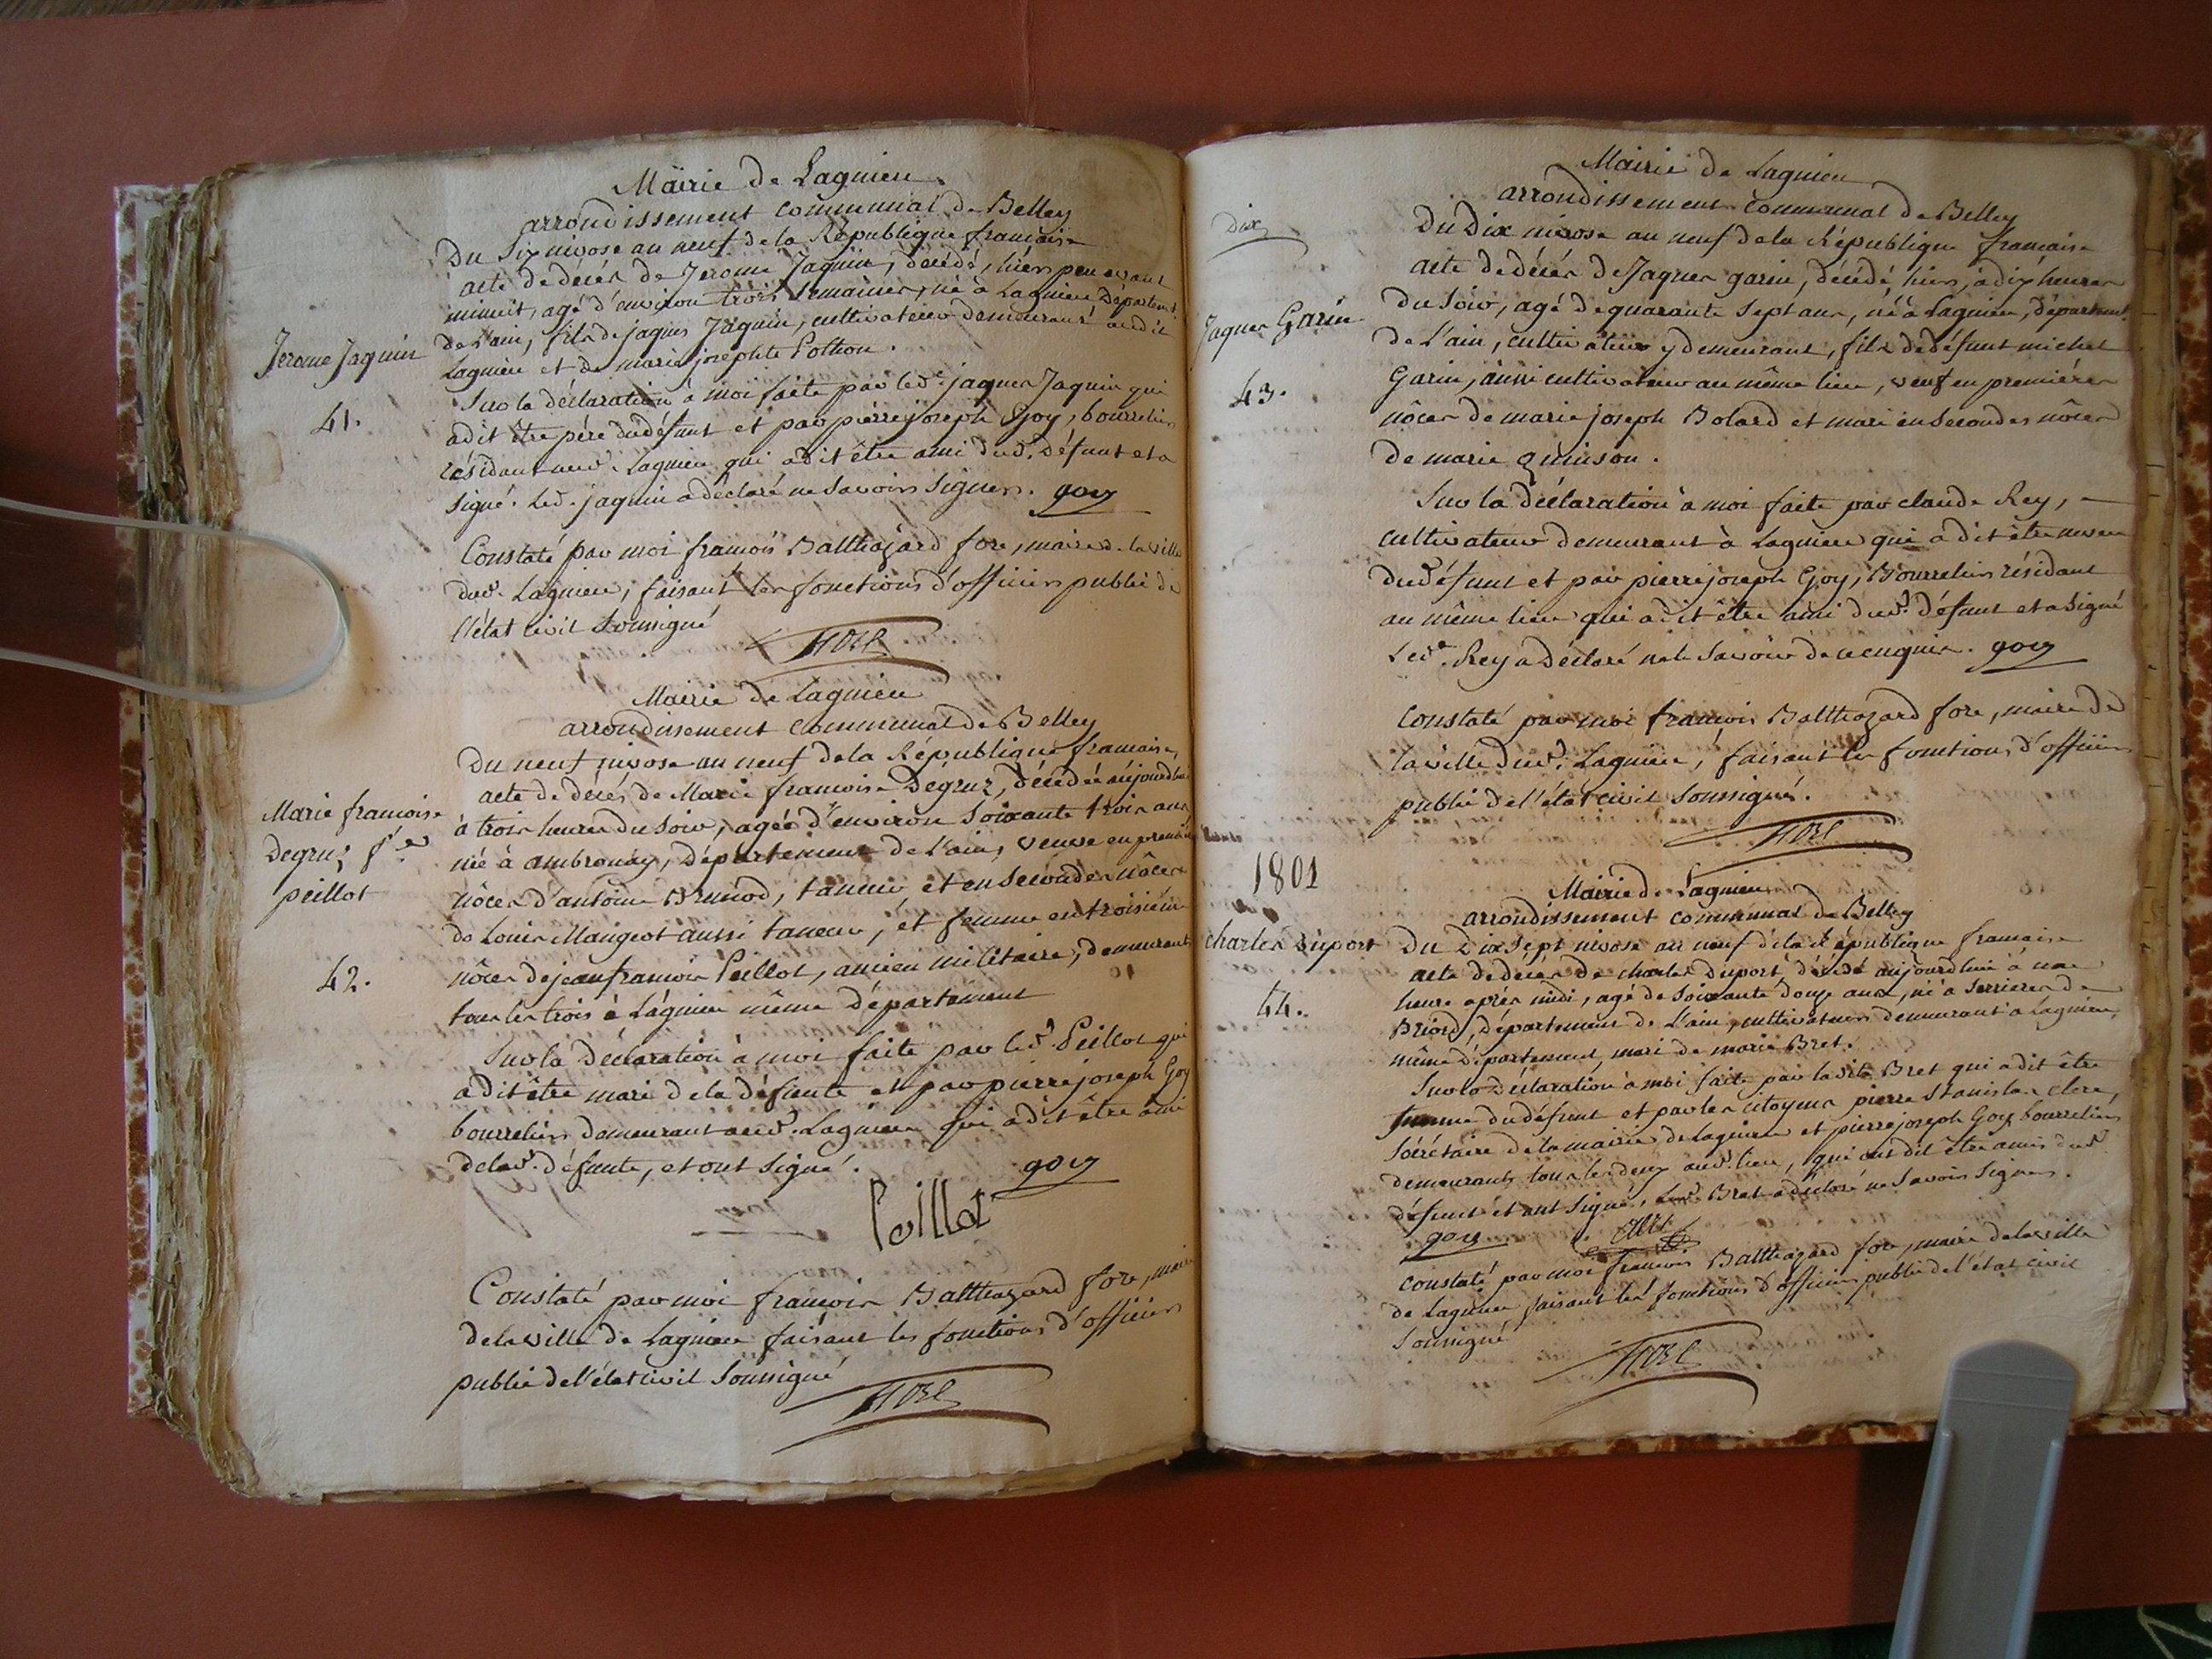 Mairie de Lagnieu
arrondissement communal de Belley
Du Six nivose an neuf de la République française
acte de décès de Jerome Jaquin, décédé, hiers peu avant
minuit, agé d'environ trois semaines, né à Lagnieu Département
de l'ain, fils de jaques Jaquin, cultivateur demeurant audit
Lagnieu et de marie josephte Pothon.
Jerome Jaquin
41.
Sur la déclaration à moi faite par led. jaques Jaquin qui
a dit être pére dudéfunt et par pierre joseph Goy, bourrelier
résidant aud. Lagnieu qui a dit être ami dud. défunt et a
signé. Led. jaquin a déclaré ne savoir signer. goy
Constaté par moi françois Balthazard fore, maire de la ville
dud. Lagnieu, faisant les fonctions d'officier public de
l'état civil soussigné
fore
Mairie de Lagnieu
arrondissement communal de Belley
Du neuf nivose an neuf de la République française,
acte de décés de Marie françoise Degruz, décédée aujourd'hui
à trois heures du soir, agée d'environ soixante trois ans
née à ambronay, département de l'ain, veuve en premières
nôces d'antoine Brunod, taneur et en secondes nôces
de Louis Mangeot aussi taneur, et femme en troisième
nôces de jean françois Peillot, ancien militaire, demeurant
tous les trois à Lagnieu même département
Marie françoise
Degruz f.e
peillot
42.
Sur la déclaration à moi faite par led. Peillot qui
a dit être mari de la défunte et par pierre joseph Goy
bourrelier demeurant aud. Lagnieu qui a dit être ami
de lad. défunte, et ont signé. goy
Peillot
Constaté par moi françois Balthazard fore, maire
de la ville de Lagnieu faisant les fonctions d'officier
public de l'état civil soussigné
fore
Dix
Mairie de Lagnieu
arrondissement communal de Belley
Du Dix nivose an neuf de la République française
acte de décès de Jaques garin, décédé, hiers, à dix heures
du soir, agé de quarante sept ans, né à Lagnieu, département
de L'ain, cultivateur y demeurant, fils de défunt michel
Garin, aussi cultivateur au même lieu, veuf en premières
nôces de marie joseph Bolard et mari en secondes nôces
de marie quinson.
Jaques Garin
43.
Sur la déclaration à moi faite par claude Rey,
cultivateur demeurant à Lagnieu qui a dit être neveu
du défunt et par pierre joseph Goy, Bourrelier résidant
au même lieu qui a dit être ami dud. défunt et a signé
Led. Rey a déclaré ne le savoir de ce enquis. goy
Constaté par moi françois Balthazard fore, maire de
la ville dud. Lagnieu, faisant les fonctions d'officier
public de l'état civil soussigné.
fore
1801
Mairie de Lagnieu
arrondissement communal de Belley
Du Dix sept nivose an neuf de la République française
acte de décès de charles duport décédé aujourdhui à une
heure après midi, agé de soixante douze ans, né à Serrieres de
Briord, département de L'ain, cultivateur demeurant à Lagnieu,
même département, mari de marie Bret.
charles duport
44.
Sur la déclaration à moi faite par ladite Bret qui a dit être
femme du défunt et par les citoyens pierre stanislas clerc,
sécrétaire de la mairie de Lagnieu et pierre joseph Goy bourrelier
demeurants tous les deux aud. lieu, qui ont dit être amis dud.
défunt et ont signé. Lad. Bret a déclaré ne savoir signer.
goy clerc
constaté par moi françois Balthazard fore, maire de la ville
de Lagnieu faisant les fonctions d'officier public de l'état civil
soussigné
fore